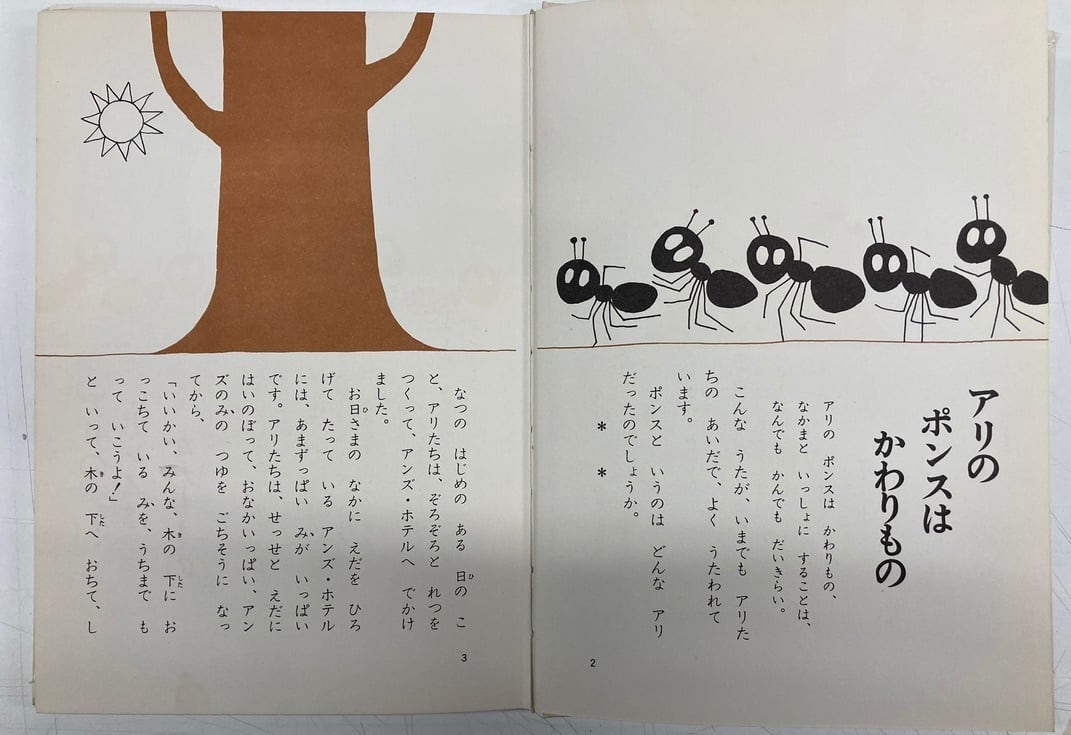 アリの
ポンスは
かわりもの
アリの ポンスは かわりもの、
なかまと いっしょに することは、
なんでも かんでも だいきらい。
こんな うたが、いまでも アリた
ちの あいだで、よく うたわれて
います。
ポンスと いうのは どんな アリ
だったのでしょうか。
* *
2
なつの はじめの ある 日の こ
と、アリたちは、ぞろぞろと れつを
つくって、アンズ・ホテルへ でかけ
ました。
お日さまの なかに えだを ひろ
げて たって いる アンズ・ホテル
には、あまずっぱい みが いっぱい
です。アリたちは、せっせと えだに
はいのぼって、おなかいっぱい、アン
ズのみの つゆを ごちそうに なっ
てから、
「いいかい、みんな、木の 下に お
っこちて いる みを、うちまで も
って いこうよ!」
と いって、木の 下へ おちて、し
3